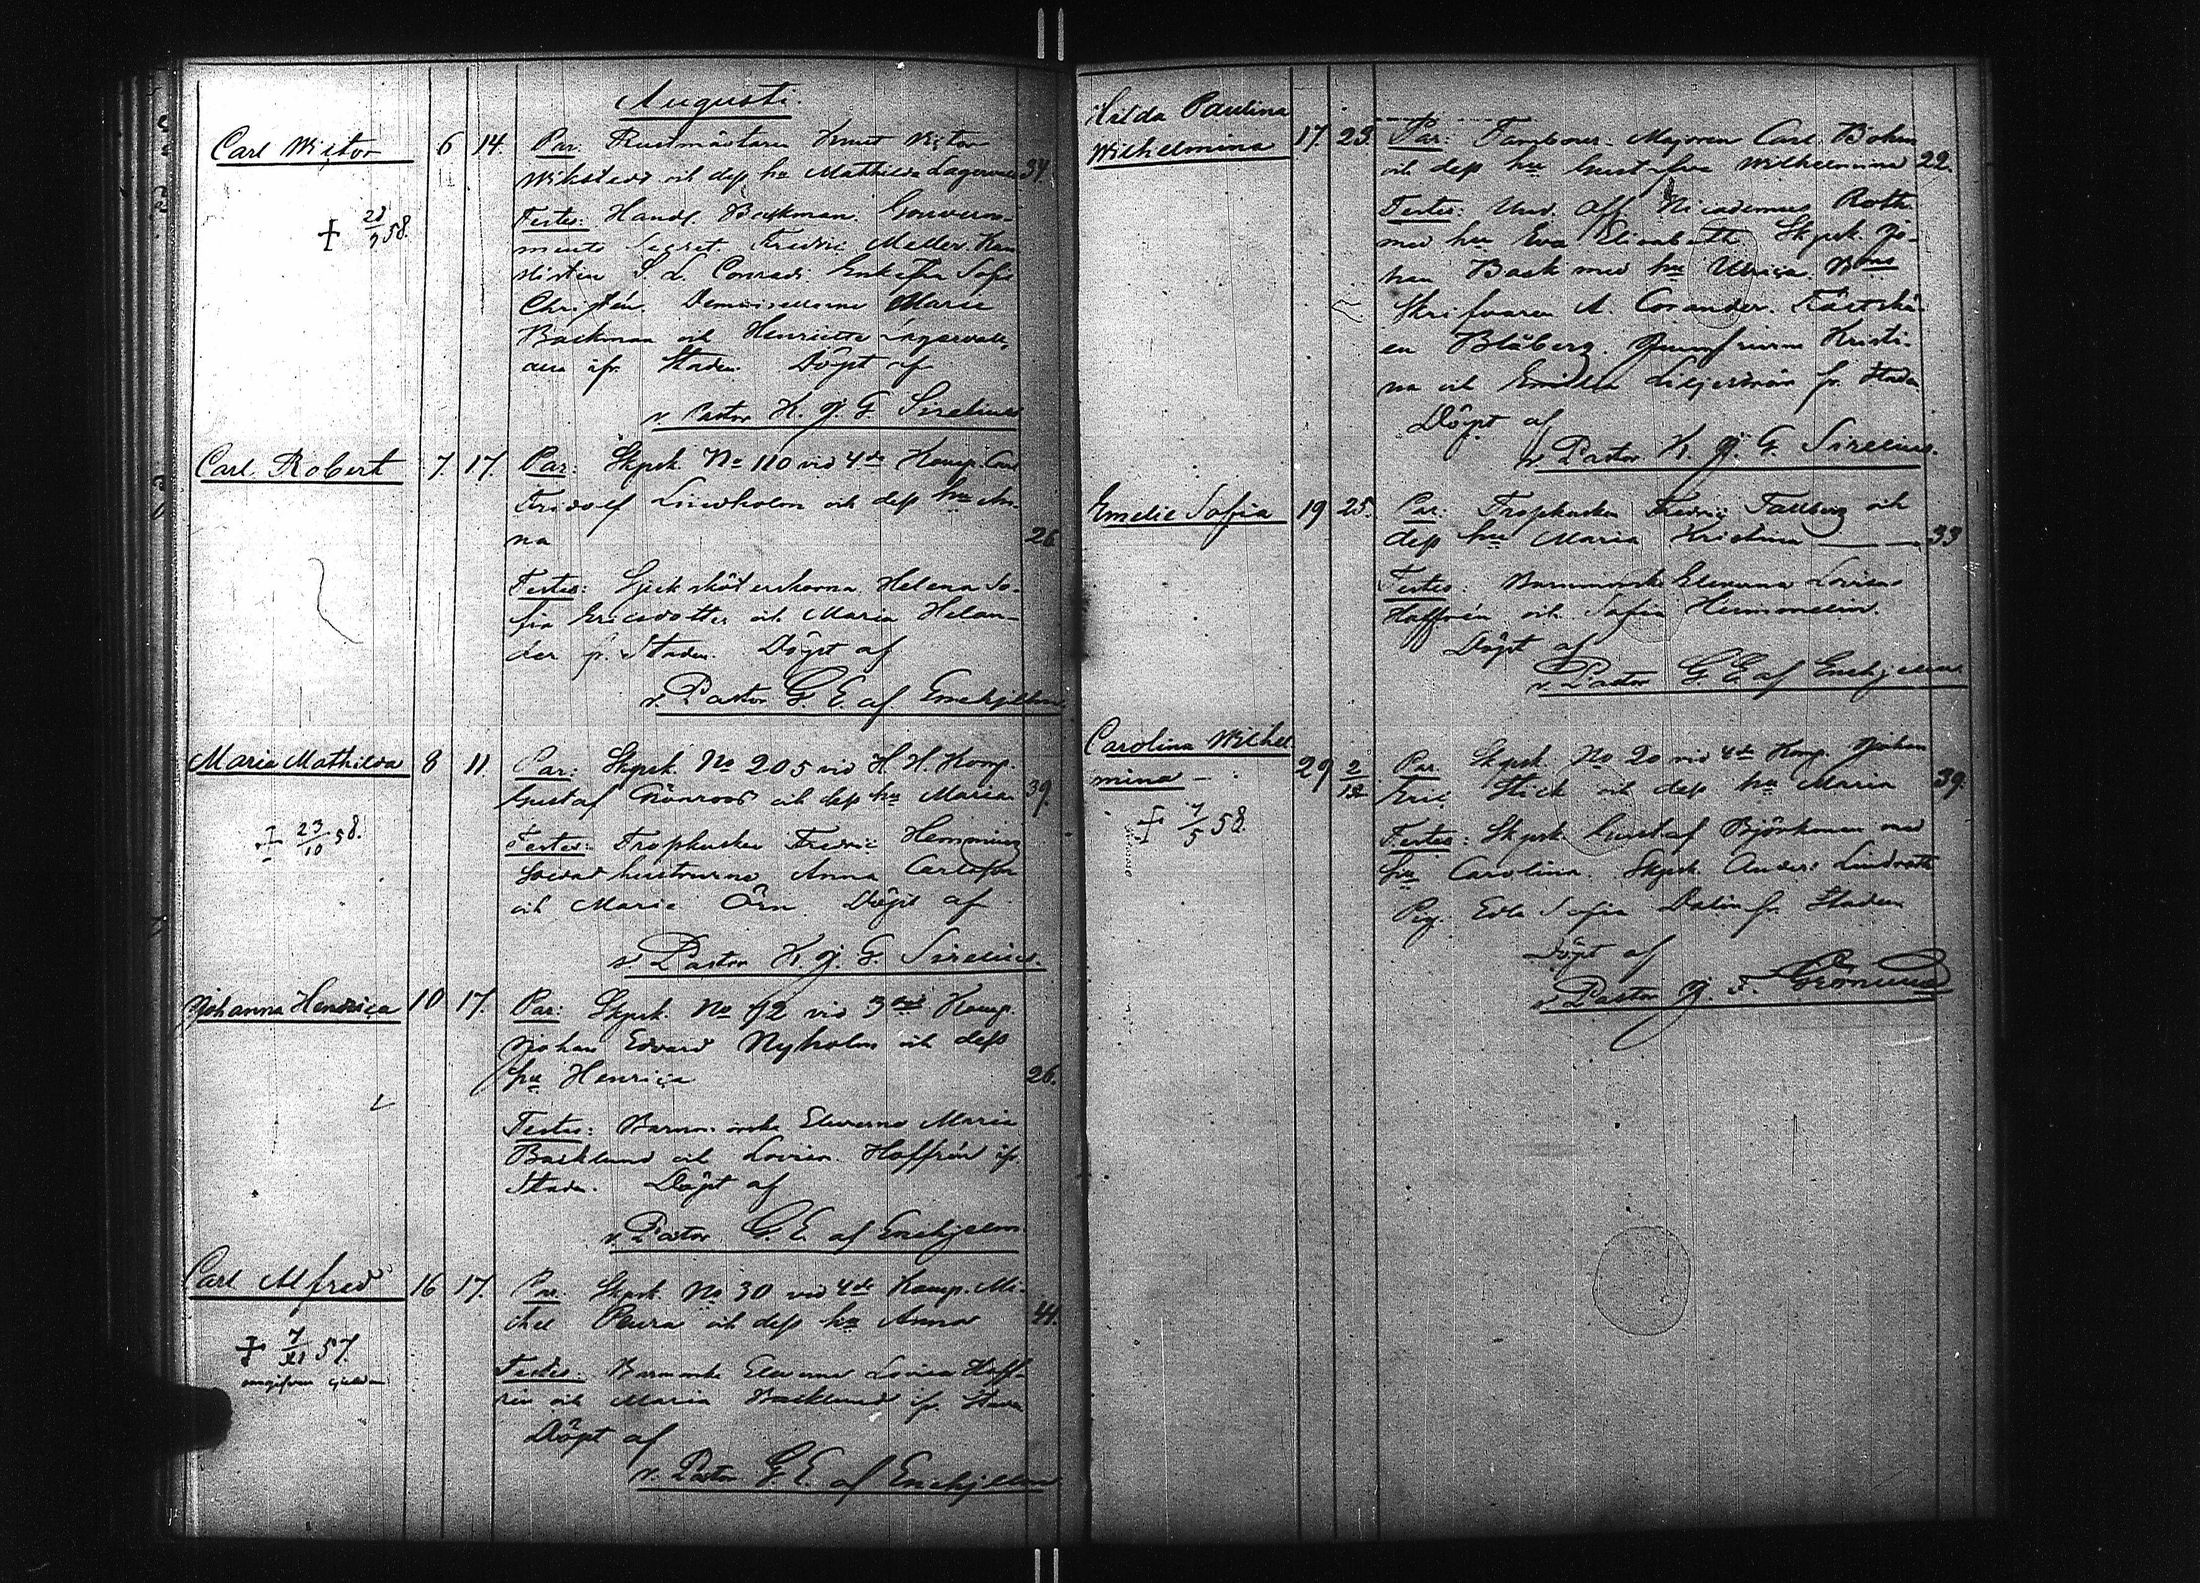 Augusti.
Carl Wictor 6 14. Par: Rustmästaren Knut Victor
Wikstedt och dess hu Mathilda 34.
Testes: Handl. Backman. Gouverne-
ments Secret. Fredric Meller. Kan-
slisten S. L. Conradi. Enkefru Sofia
Christén. Demoisellerna Maria
Backman och Henriette
ifr. Staden. Döpt af
v. Pastor K. J. G. Sirelius
+ 58.
Carl Robert 7 17. Par: Skpsk. No 110 vid 4de Komp. Carl
Fridolf Lindholm och dess hu An-
na 26
Testes: Sjuksköterskorna Helena So-
fia Ericsdotter och Maria Helan-
der fr. Staden. Döpt af
v. Pastor G. E. af Enehjelm
Maria Mathilda 8 11 Par: Skpsk. No 205 vid H. H. Komp.
Gustaf Grönroos och dess hu Maria 39.
+ 23/10 58.
Testes: Fredric Hemming
Soldat hustrurna Anna
och Maria Örn. Döpt af
v. Pastor K. J. G. Sirelius.
Johanna Henrica 10 17. Par: Skpsk. No 92 vid 3dje Komp.
Johan Edvard Nyholm och dess
hu Henrica 26.
Testes: Barnm orske Eleverna Maria
Backlund och Lovisa Hoffrén ifr.
Staden. Döpt af
v. Pastor G. E. af Enehjelm.
Carl Alfred 16 17. Par. Skpsk. No 30 vid 4de Komp. Mi-
chel och dess hu Anna 44.
+ 7/XI 57.
Testes. Barnmorske Eleverna Lovisa Hoff-
rén och Maria Backlund ifr. Staden
Döpt af
v. Pastor G. E. af Enehjelm
Hilda Paulina
Wilhelmina 17. 23. Par: Tambour-Majoren Carl Bohm
och dess hu Gustafva Wilhelmina 22.
Testes: Und. Off. Nicodemus Roth
med hu Eva Elisabeth. Skpsk. Jo-
han Back med hu Ulrica.
Skrifvaren A. Corander.
en Blåberg. Jungfrurna Kristi-
na och Emilia fr. Staden
Döpt af
v. Pastor K. J. G. Sirelius.
Emelie Sofia 19 25. Par: Fredric Fallberg och
dess hu Maria Kristina 33
Testes: Barnmorske Eleverna Lovisa
Hoffrén och Sofia
Döpt af
v. Pastor G. E. af Enehjelm
Carolina Wilhel
mina - 29 Par. Skpsk. No 20 vid 4de Komp. Johan
Eric Stick och dess hu Maria 39.
+ 7/5 58.
Testes: Skpsk. Gustaf Björkman med
hu Carolina. Skpsk. Anders Lindroth
Pig. Edla Sofia Dalin fr. Staden
Döpt af
v. Pastor J. F. Grönlund